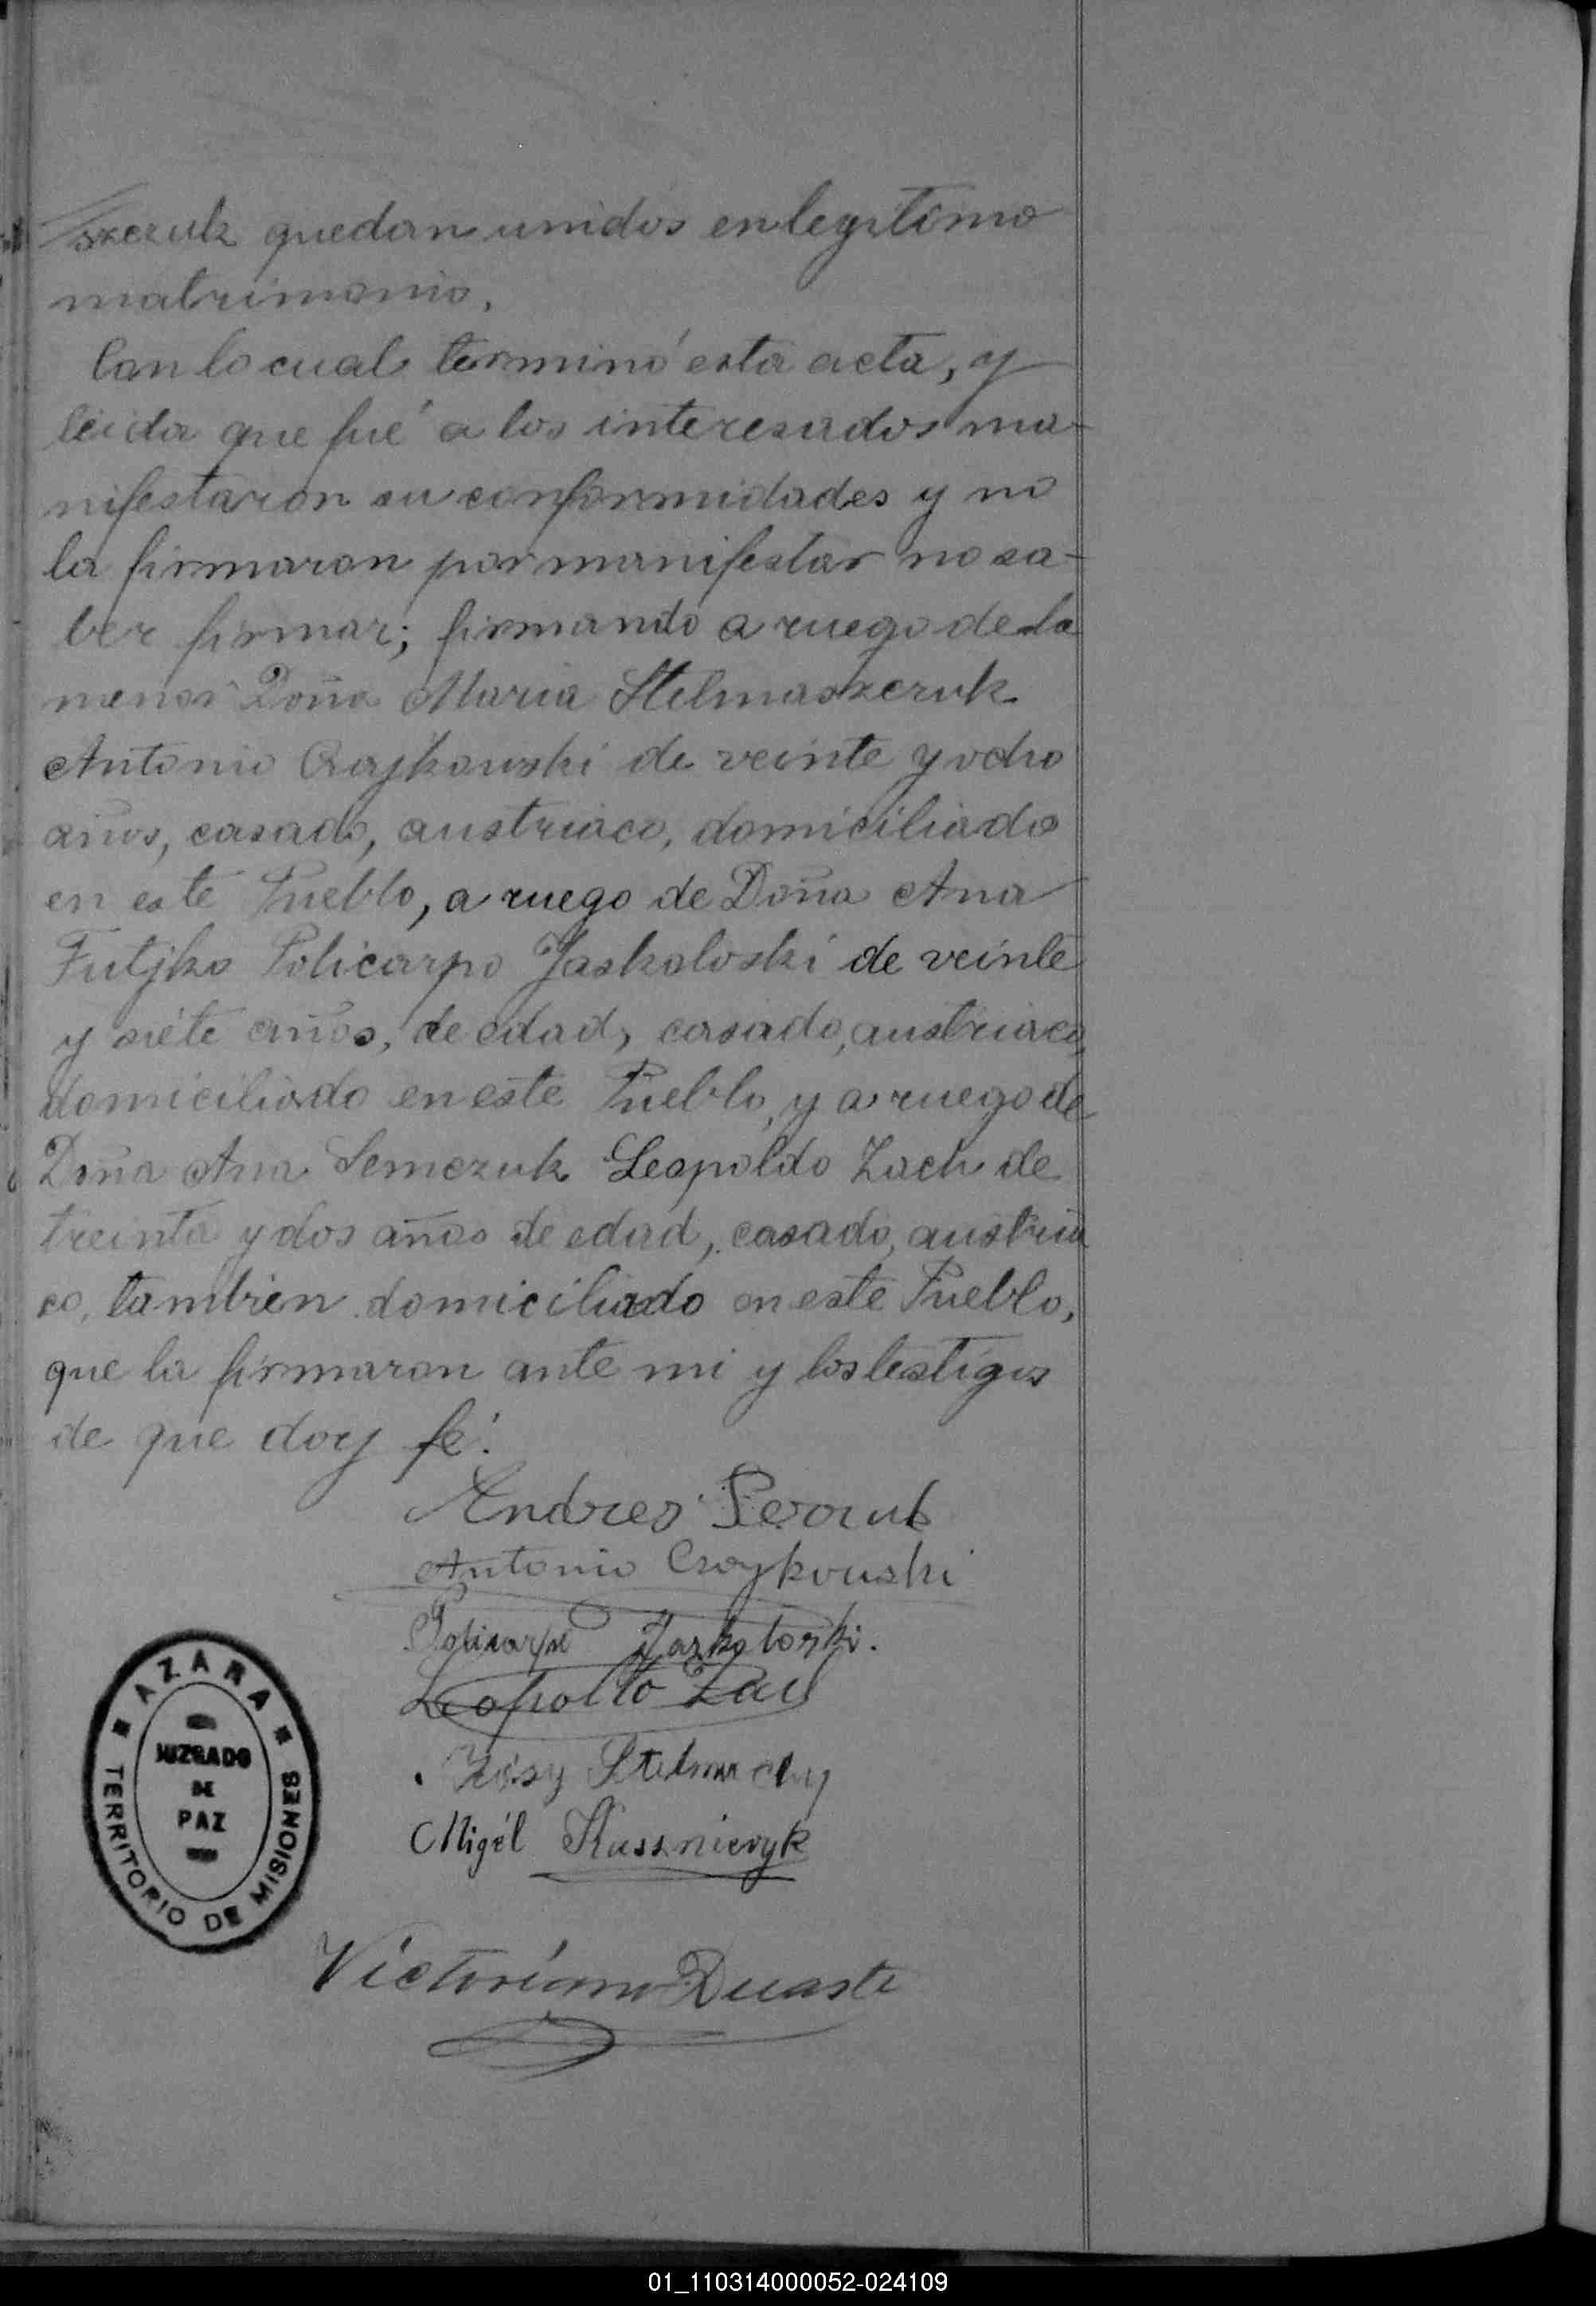 szczuk quedan unidos en legitimo
matrimonio.
Con lo cual terminó esta acta, y
leida que fué a los interesados ma-
nifestaron su conformidades y no
la firmaron por manifestar no sa-
ber firmar; firmando a ruego de la
menor Doña Maria Stelmaszczuk
Antonio Czajkowski de veinte y ocho
años, casado, austriaco, domiciliado
en este Pueblo, a ruego de Doña Ana
Futjko Policarpo Jaskaloski de veinte
y siete años, de edad, casado, austriaco,
domiciliado en este Pueblo, y a ruego de
Doña Ana Semczuk Leopoldo Zach de
treinta y dos años de edad, casado, austria
co, tambien domiciliado en este Pueblo,
que la firmaron ante mi y los testigos
de que doy fé.
Andres
Antonio Czajkouski
Policarpo
Leopoldo Zach
Migél
Victoriano Duarte
AZARA
JUZGADO
DE
PAZ
TERRITORIO DE MISIONES
01_110314000052-024109